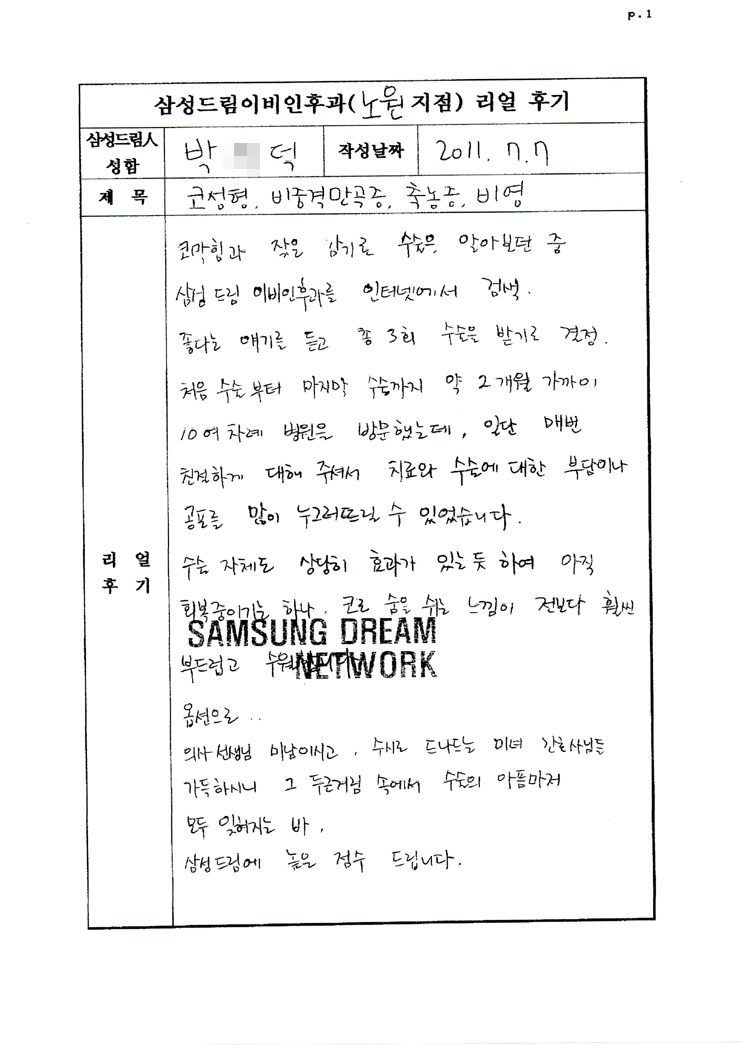 p.1
삼성드림이비인후과(노원지점) 리얼 후기
삼성드림人 성함 박 덕 작성날짜 2011. 7. 7
제 목 코성형, 비중격만곡증, 축농증, 비염
리 얼 후 기
코막힘과 잦은 감기로 수술을 알아보던 중
삼성드림 이비인후과를 인터넷에서 검색.
좋다는 얘기를 듣고 총 3회 수술을 받기로 결정.
처음 수술부터 마지막 수술까지 약 2개월 가까이
10여 차례 병원을 방문했는데, 일단 매번
친절하게 대해 주셔서 치료와 수술에 대한 부담이나
공포를 많이 누그러뜨릴 수 있었습니다.
수술 자체도 상당히 효과가 있는듯 하여 아직
회복중이기는 하나, 코로 숨을 쉬는 느낌이 전보다 훨씬
SAMSUNG DREAM
부드럽고
NETWORK
옵션으로..
의사선생님 미남이시고, 수시로 드나드는 미녀 간호사님들
가득하시니 그 두근거림 속에서 수술의 아픔마저
모두 잊혀지는 바,
삼성드림에 높은 점수 드립니다.